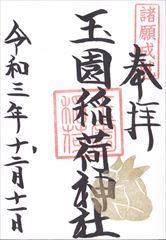 奉拝
諸願成就
玉園稲荷神社
稲荷
令和三年十二月十二日